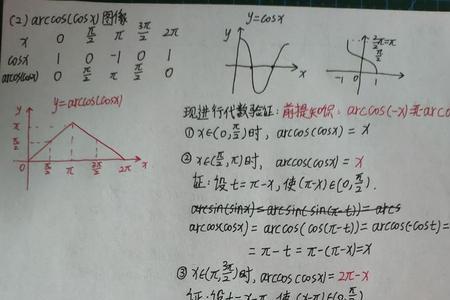 (2) arccos(cosx)图像
x 0 π/2 π 3π/2 2π
cosx 1 0 -1 0 1
arccos(cosx) 0 π/2 π π/2 0
y=cosx
y
x
-1 0 1
y=arccos(cosx)
y
π
π/2
0 π/2 π 3π/2 2π x
现进行代数验证: 前提知识: arccos(-x)
① x∈(0,π/2)时, arccos(cosx) = x
② x∈(π/2,π)时, arccos(cosx) = x
证:设t=π-x,使(π-x)∈(0,π/2).
arcsin(sinx)=arcsin(sin(π-t))=arcs
arccos(cosx) = arccos(cos(π-t)) = arccos(-cost) =
= π-t = π-(π-x)=x
③ x∈(π,3π/2)时, arccos(cosx) = 2π-x
证:设t=x-π, 使(x-π)∈(0,π/2)